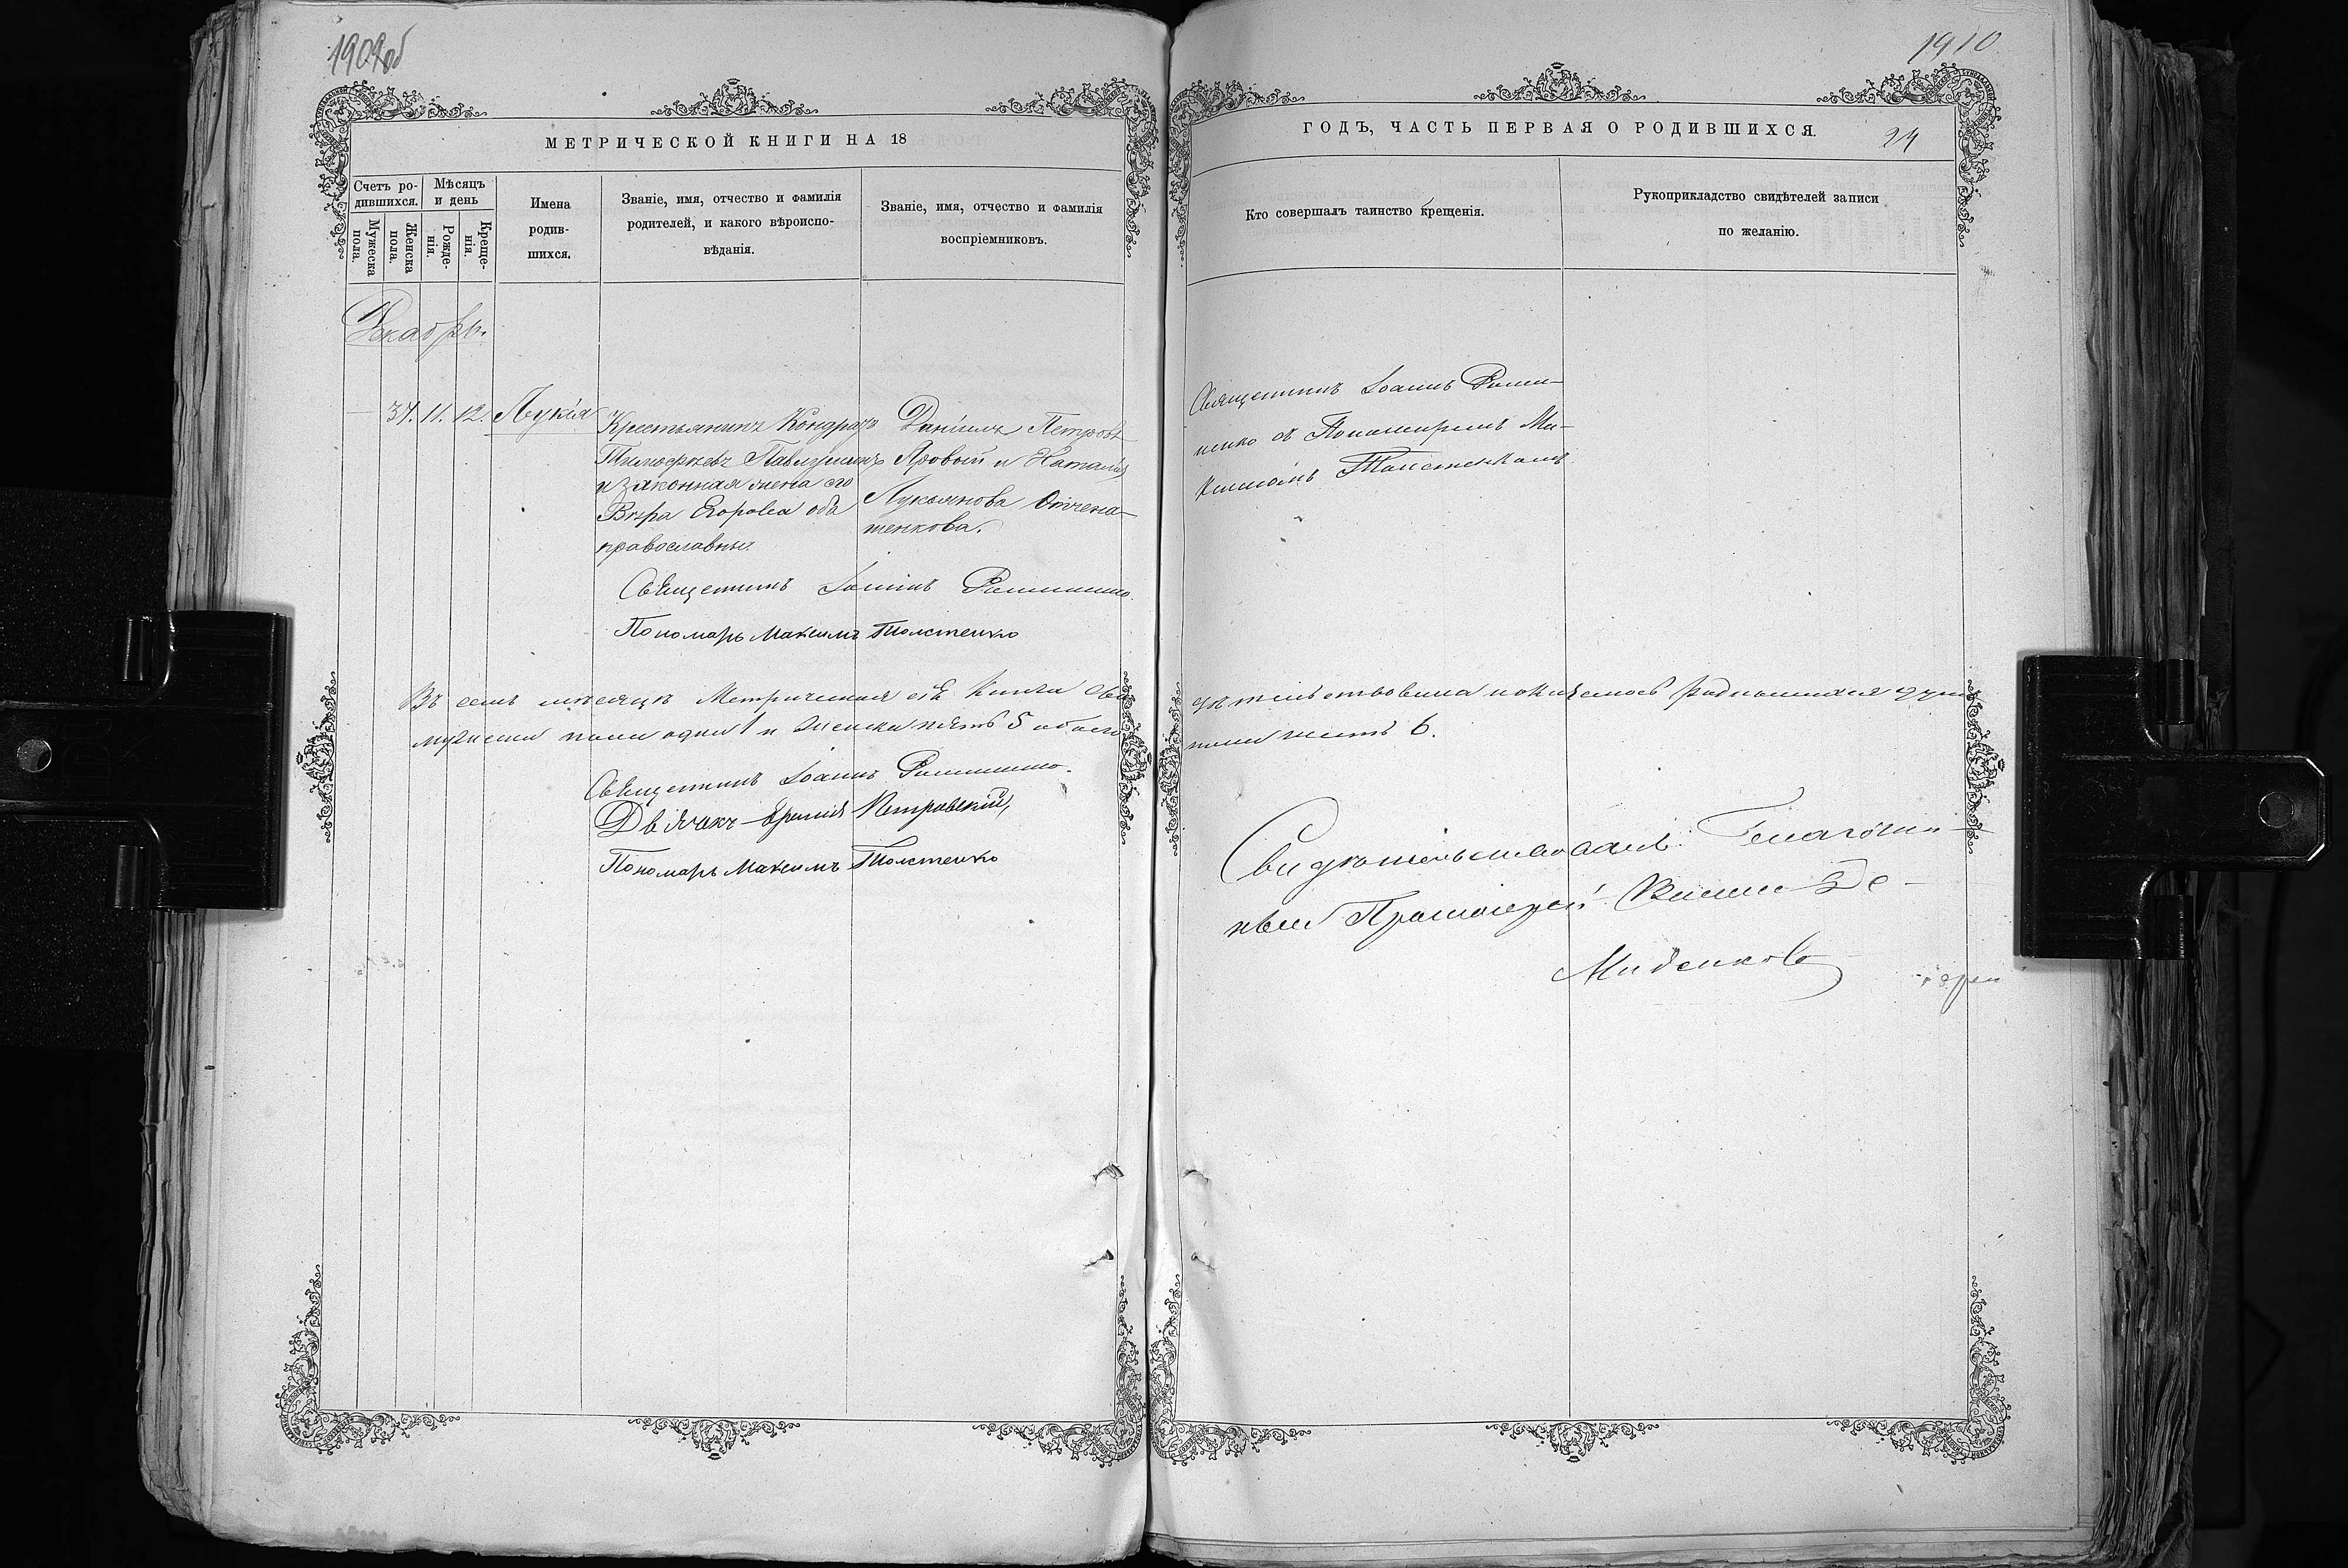 1909об
МЕТРИЧЕСКОЙ КНИГИ НА 18
Счетъ ро-
дившихся.
Мужеска
пола.
Женска
пола.
Мѣсяцъ
и день
Рожде-
нія.
Креще-
нія.
Имена
родив-
шихся.
Званіе, имя, отчество и фамилія
родителей, и какого вѣроиспо-
вѣданія.
Званіе, имя, отчество и фамилія
воспріемниковъ.
Декабрь.
11. 12. Лукія
Крестьянинъ Кондратъ
Тимофѣевъ
и законная жена его
Вѣра Егорова оба
православные.
Даніилъ Петровъ
Яровый и Наталія
Лукьянова Отчена-
шенкова.
Священникъ Іоаннъ
Пономарь Максимъ Толстенко
Въ семъ мѣсяцѣ Метрическая сія Книга сви
мужеска пола одинъ 1 и женска пять 5 обоего
Священникъ Іоаннъ
Дьячокъ Петровскій,
Пономарь Максимъ Толстенко
1910
ГОДЪ, ЧАСТЬ ПЕРВАЯ О РОДИВШИХСЯ.
24
Кто совершалъ таинство крещенія.
Рукоприкладство свидѣтелей записи
по желанію.
Священникъ Іоаннъ
съ Пономаремъ Ма-
ксимомъ Толстенкомъ
дѣтельствована
пола шесть 6.
Свидѣтельствовалъ Благочин-
ный